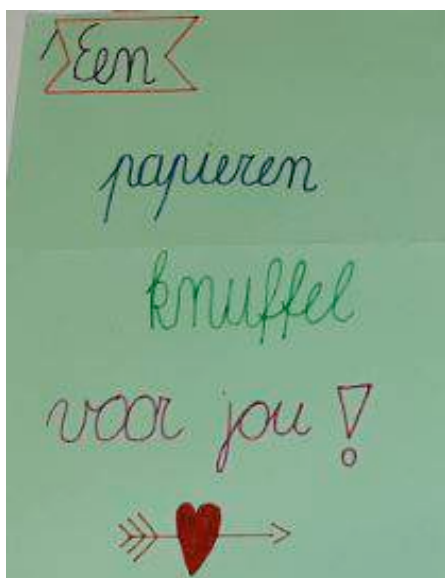 Een
papieren
knuffel
voor jou!